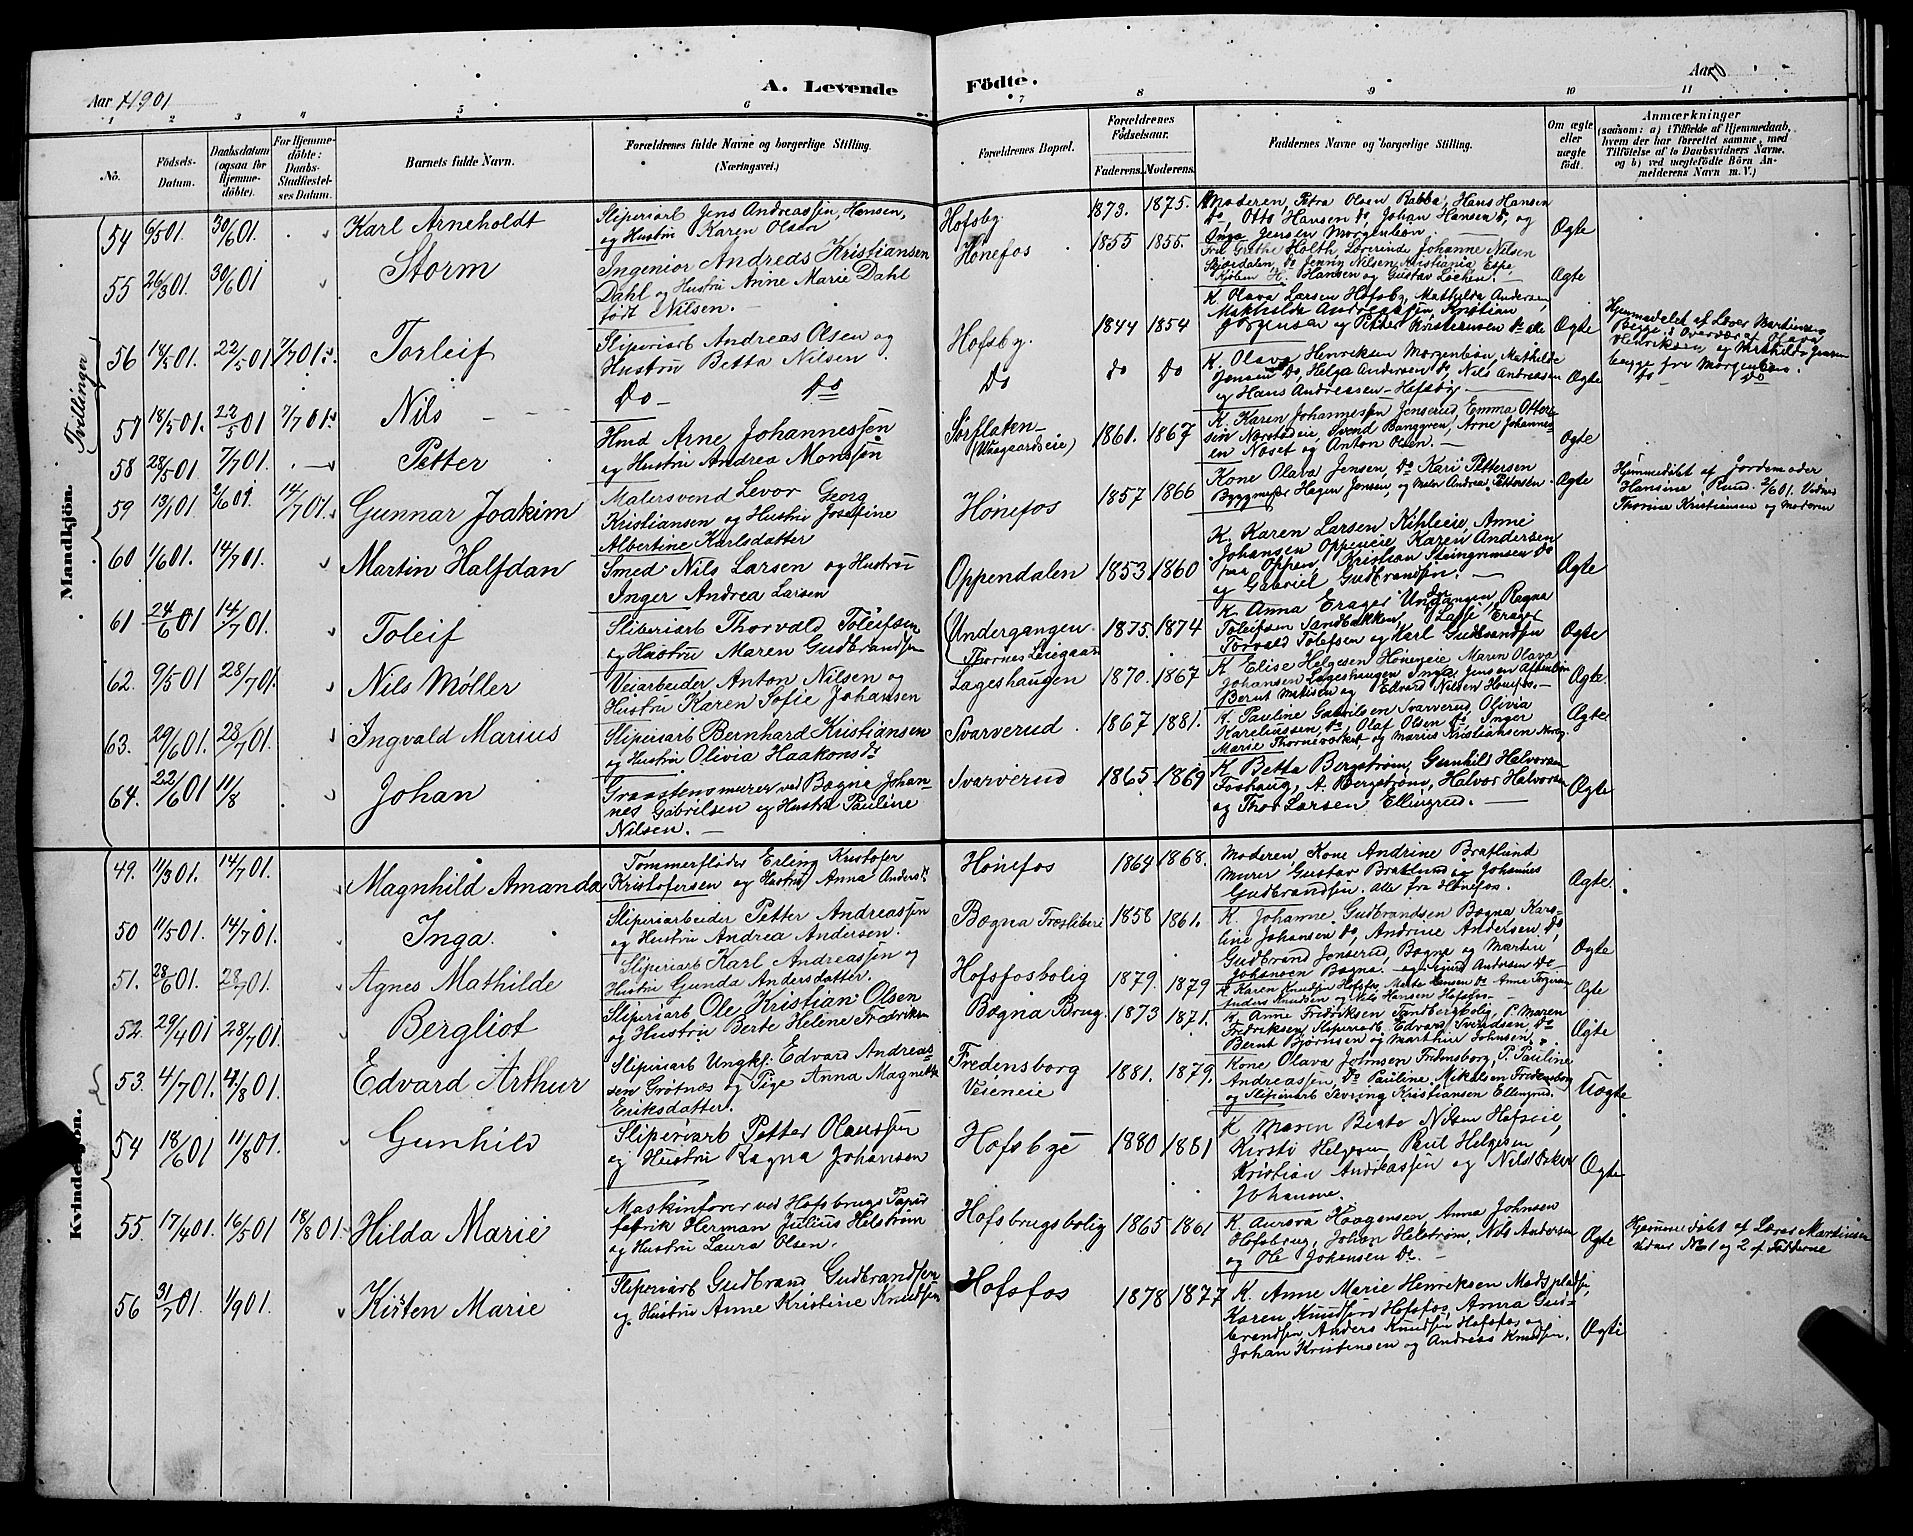 Aar 1901
A. Levende Födte.
Aar 70
1 2 3 4 5 6 7 8 9 10 11
No.
Födsels-Datum.
Daabsdatum (ogsaa for Hjemmedöbte).
For Hjemmedöbte: Daabs-Stadfæstelses Datum.
Barnets fulde Navn.
Forældrenes fulde Navne og borgerlige Stilling.
(Næringsvei.)
Forældrenes Bopæl.
Forældrenes Födselsaar.
Faderens. Moderens.
Faddernes Navne og borgerlige Stilling.
Om ægte eller uægte födt.
Anmærkninger
(saasom: a) i Tilfælde af Hjemmedaab, hvem der har forrettet samme, med Tilföielse af to Daabsvidners Navne, og b) ved uægtefödte Börn Anmelderens Navn m. V.)
Mandkjön.
Tvillinger
54 6/5 01. 30/6 01. Karl Arneholdt
Sliperiarb Jens Andreassen Hansen,
og Hustru Karen Olsen
Hofsby 1873. 1875.
Moderen, Petra Olsen Rabba, Hans Hansen
do, Otto Hansen do, Johan Hansen do, og
Inga Jensen Morgenbøn.
Ægte
55 26/3 01. 30/6 01 Storm
Ingeniør Andreas Kristiansen
Dahl og Hustru Anne Marie Dahl
født Nilsen.
Hønefos 1855 1855.
Frk Grethe Holth, Lærerinde Johanne Nilsen
Stjørdalen, do Jenny Nilsen Kristiania,
Hansen og Gustav Løcken.
Ægte
56 18/5 01. 22/5 01 7/7 01. Torleif
Sliperiarb Andreas Olsen og
Hustru Betta Nilsen.
Hofsby. 1844 1854
K. Olava Larsen Hofsby, Mathilda Andersen,
Mathilde Andreassen, Kristian
Jørgensen og Petter Kristensen do
Ægte
Hjemmedøbt af Lærer Martinsen
Begge i Overvær af Olava
Henriksen, og Mathilde Jensen
begge fra Morgenbøn.
57 18/5 01. 22/5 01 7/7 01. Nils
Do Do
Do do do
K. Olava Henriksen Morgenbøn, Mathilde
Jensen Do, Helga Andersen do, Nils Andreassen
og Hans Andreassen Hofsby.
Ægte
Do Do
58 28/5 01. 7/7 01. Petter
Hmd Arne Johannessen
og Hustru Andrea Monssen
Sørflaten 1861. 1867
K. Karen Johannessen Jonserud, Emma Ottersen
Svend Banggren, Arne Johannesen
Næset og Anton Olsen.
Ægte
59 13/1 01. 2/6 01 14/7 01. Gunnar Joakim
Malersvend Levor Georg
Kristiansen og Hustru Josefine
Albertine Karlsdatter
Hønefos 1857 1866
Kone Olava Jensen, Do Kari Pettersen
Bygmester Hagen Jensen, og Maler Andreas Pettersen
Ægte
Hjemmedøbt af Jordemoder
Hansine Ruud 2/6 01. Vidner
Thorine Kristiansen og Moderen
60 1/6 01. 14/7 01. Martin Halfdan
Smed Nils Larsen og Hustru
Inger Andrea Larsen
Oppendalen 1853 1860
K. Karen Larsen Kihleie, Anne
Johansen Oppeneie, Karen Andersen
Oppen, Kristian Steingrimsen do
og Gabriel Gudbrandsen.
Ægte
61 24/6 01 14/7 01. Toleif
Sliberiarb Thorvald Toleifsen
og Hustru Maren Gudbrandsen
Undergangen 1875. 1874
K Anna Erager Undgangen, Ragna
Toleifsen Sandbakken, Lasse Erager
Torvald Tolefsen og Karl Gudbrandsen
Ægte
62. 9/5 01 28/7 01. Nils Møller
Veiarbeider Anton Nilsen og
Hustru Karen Sofie Johansen
Lageshaugen 1870. 1867
K Elise Helgesen Hønegeie, Maren Olava
Johansen Lageshaugen, Inga Jensen
Bernt Matisen og Edvard Nilsen Hønefos.
Ægte
63. 29/6 01. 28/7 01. Ingvald Marius
Sliperiarb Bernhard Kristiansen
og Hustru Olivia Haakonsdr
Svarverud. 1867 1881.
K. Pauline Gabrilsen Svarverud, Olivia
Kareliussen, Do, Olaf Olsen do, Inger
Marie og Marius Kristiansen
Ægte
64. 22/6 01 11/8 Johan
Graastensmurer ved Bægna Johannes
Gabrilsen og Hustru Pauline
Nilsen.
Svarverud 1865 1869
K Betta Bergstrøm, Gunhild Halvorsen
Foshaug, A. Bergstrøm, Halvor Halvorsen
og Thor Larsen Ellingrud.
Ægte
Kvindekjön.
49. 11/3 01. 14/7 01. Magnhild Amanda
Tømmerfløder Erling Kristofer
Kristofersen og Hustru Anna Andersdr
Hønefos 1864 1868.
Moderen Kone Andrine Bratlund
Murer Gustav Bratlund og Johannes
Gudbrandsen. Alle fra Hønefos.
Ægte
50 11/5 01. 14/7 01. Inga.
Sliperiarbeider Petter Andreassen
og Hustru Andrea Andersen.
Bægna Træsliberi 1858 1861.
K. Johanne Gudbrandsen Bægna, Karoline
Johansen do, Andrine Andersen, do
Gudbrand Jonserud, Bægna og Martin
Johansen Bægna.
Ægte
51. 28/6 01. 28/7 01. Agnes Mathilde
Sliperiarb Karl Andreassen og
Hustru Gunda Andersdatter.
Hofsfosbolig 1879. 1879
K Karen Knudsen Hofsfos, Marte Hansen Do
Anders Knudsen og Nils Hansen Hofsfos.
Ægte
52. 29/4 01 28/7 01. Bergliot
Sliperiarb Ole Kristian Olsen
og Hustru Berte Helene Fredriksen
Bægna Brug. 1873 1871.
K. Anne Fredriksen Sandbergbolig, P. Maren
Fredriksen, Sliperiarb Edvard Svendsen, Do
Bernt Bjørnsen og Marthin Johnsen.
Ægte
53. 4/7 01. 4/8 01. Edvard Arthur
Sliperiarb Ungk. Edvard Andreassen
Grøtnæs og Pige Anna Magnette
Eriksdatter.
Fredensborg
Veseneie 1881. 1879.
Kone Olava Johnsen Fredensborg, P. Pauline
Andreassen, Do Pauline Mikalsen Fredensborg
og Sliperiarb Severing Kristiansen Ellingrud.
Uægte
54 18/6 01 11/8 01. Gunhild
Sliperiarb Petter Olaussen
og Hustru Ragna Johansen
Hofsbye 1880 1881
K Maren Beate Nilsen Hofseie,
Kirsti Helgesen, Paul Helgesen
Kristian Andreassen og Nils Oskar
Johannes.
Ægte
55. 17/4 01. 16/5 01 18/8 01. Hilda Marie
Maskinfører ved Hofsbrugs Papir
fabrik Herman Julius Helstrøm
og Hustru Laura Olsen.
Hofsbrugsbolig 1865 1861
K. Aurora Haagensen, Anna Johnsen
Hofsbrug, Johan Helstrøm, Nils Andersen
og Ole Johansen Do.
Ægte
Hjemme døbt af Lærer Martinsen
Vidner No 1 og 2 af Fadderne
56 31/7 01. 1/9 01. Kirsten Marie
Sliperiarb Gudbrand Gudbrandsen
og Hustru Anne Kristine Knudsen
Hofsfos 1878 1877
K. Anne Marie Henriksen Madspladsen,
Karen Knudsen Hofsfos, Anna Gudbrandsen,
Anders Knudsen Hofsfos og
Johan Kristensen og Andreas Knudsen.
Ægte